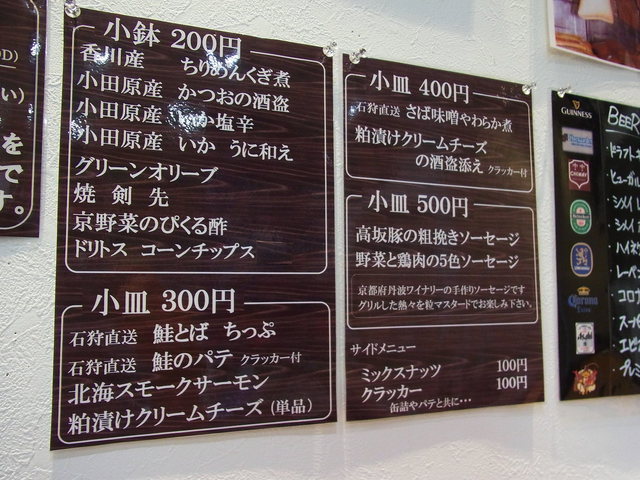 OD)
い)
を
で
す。
小鉢 200円
香川産 ちりめんくぎ煮
小田原産 かつおの酒盗
小田原産 いか塩辛
小田原産 いか うに和え
グリーンオリーブ
焼 剣 先
京野菜のぴくる酢
ドリトス コーンチップス
小皿 300円
石狩直送 鮭とば ちっぷ
石狩直送 鮭のパテ クラッカー付
北海スモークサーモン
粕漬けクリームチーズ (単品)
小皿 400円
石狩直送 さば味噌やわらか煮
粕漬けクリームチーズ
の酒盗添え クラッカー付
小皿 500円
高坂豚の粗挽きソーセージ
野菜と鶏肉の5色ソーセージ
京都府丹波ワイナリーの手作りソーセージです
グリルした熱々を粒マスタードでお楽しみ下さい。
サイドメニュー
ミックスナッツ 100円
クラッカー 100円
缶詰やパテと共に・・・
GUINNESS
BEER
ドラフトギ
ヒューガル
シメイ レ
シメイ ホ
ハイネ
レーベ
コロナ
スーパ
エビス
プレミ
CHIMAY
Heineken
Corona
Extra
Asahi